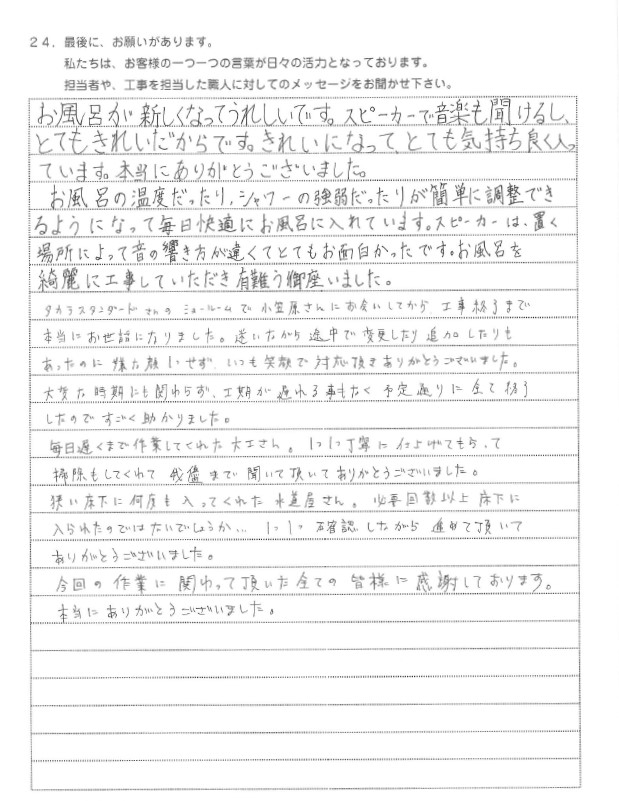 24．最後に、お願いがあります。
私たちは、お客様の一つ一つの言葉が日々の活力となっております。
担当者や、工事を担当した職人に対してのメッセージをお聞かせ下さい。
お風呂が新しくなってうれしいです。スピーカーで音楽も聞けるし、
とてもきれいだからです。きれいになって、とても気持ち良く入っ
ています。本当にありがとうございました。
お風呂の温度だったり、シャワーの強弱だったりが簡単に調整でき
るようになって毎日快適にお風呂に入れています。スピーカーは、置く
場所によって音の響き方が違くてとてもお面白かったです。お風呂を
綺麗に工事していただき有難う御座いました。
タカラスタンダードさんのショールームで小笠原さんにお会いしてから、工事終了まで
本当にお世話になりました。迷いながら途中で変更したり追加したりも
あったのに嫌な顔1つせず、いつも笑顔で対応頂きありがとうございました。
大変な時期にも関わらず、工期が遅れる事もなく予定通りに全て終了
したのですごく助かりました。
毎日遅くまで作業してくれた大工さん。1つ1つ丁寧に仕上げてもらって
掃除もしてくれて我儘まで聞いて頂いてありがとうございました。
狭い床下に何度も入ってくれた水道屋さん。必要回数以上床下に
入られたのではないでしょうか… 1つ1つ確認しながら進めて頂いて
ありがとうございました。
今回の作業に関わって頂いた全ての皆様に感謝しております。
本当にありがとうございました。